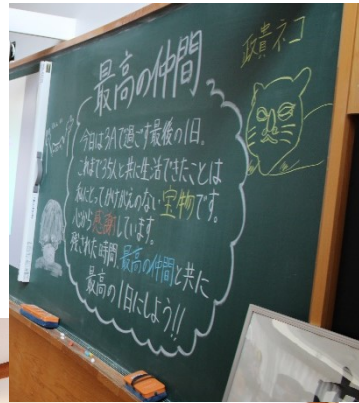 最高の仲間
今日は3Aで過ごす最後の1日。
これまで35人と共に生活できたことは
私にとってかけがえのない宝物です。
心から感謝しています。
残された時間最高の仲間と共に
最高の1日にしよう!!
政貴ネコ